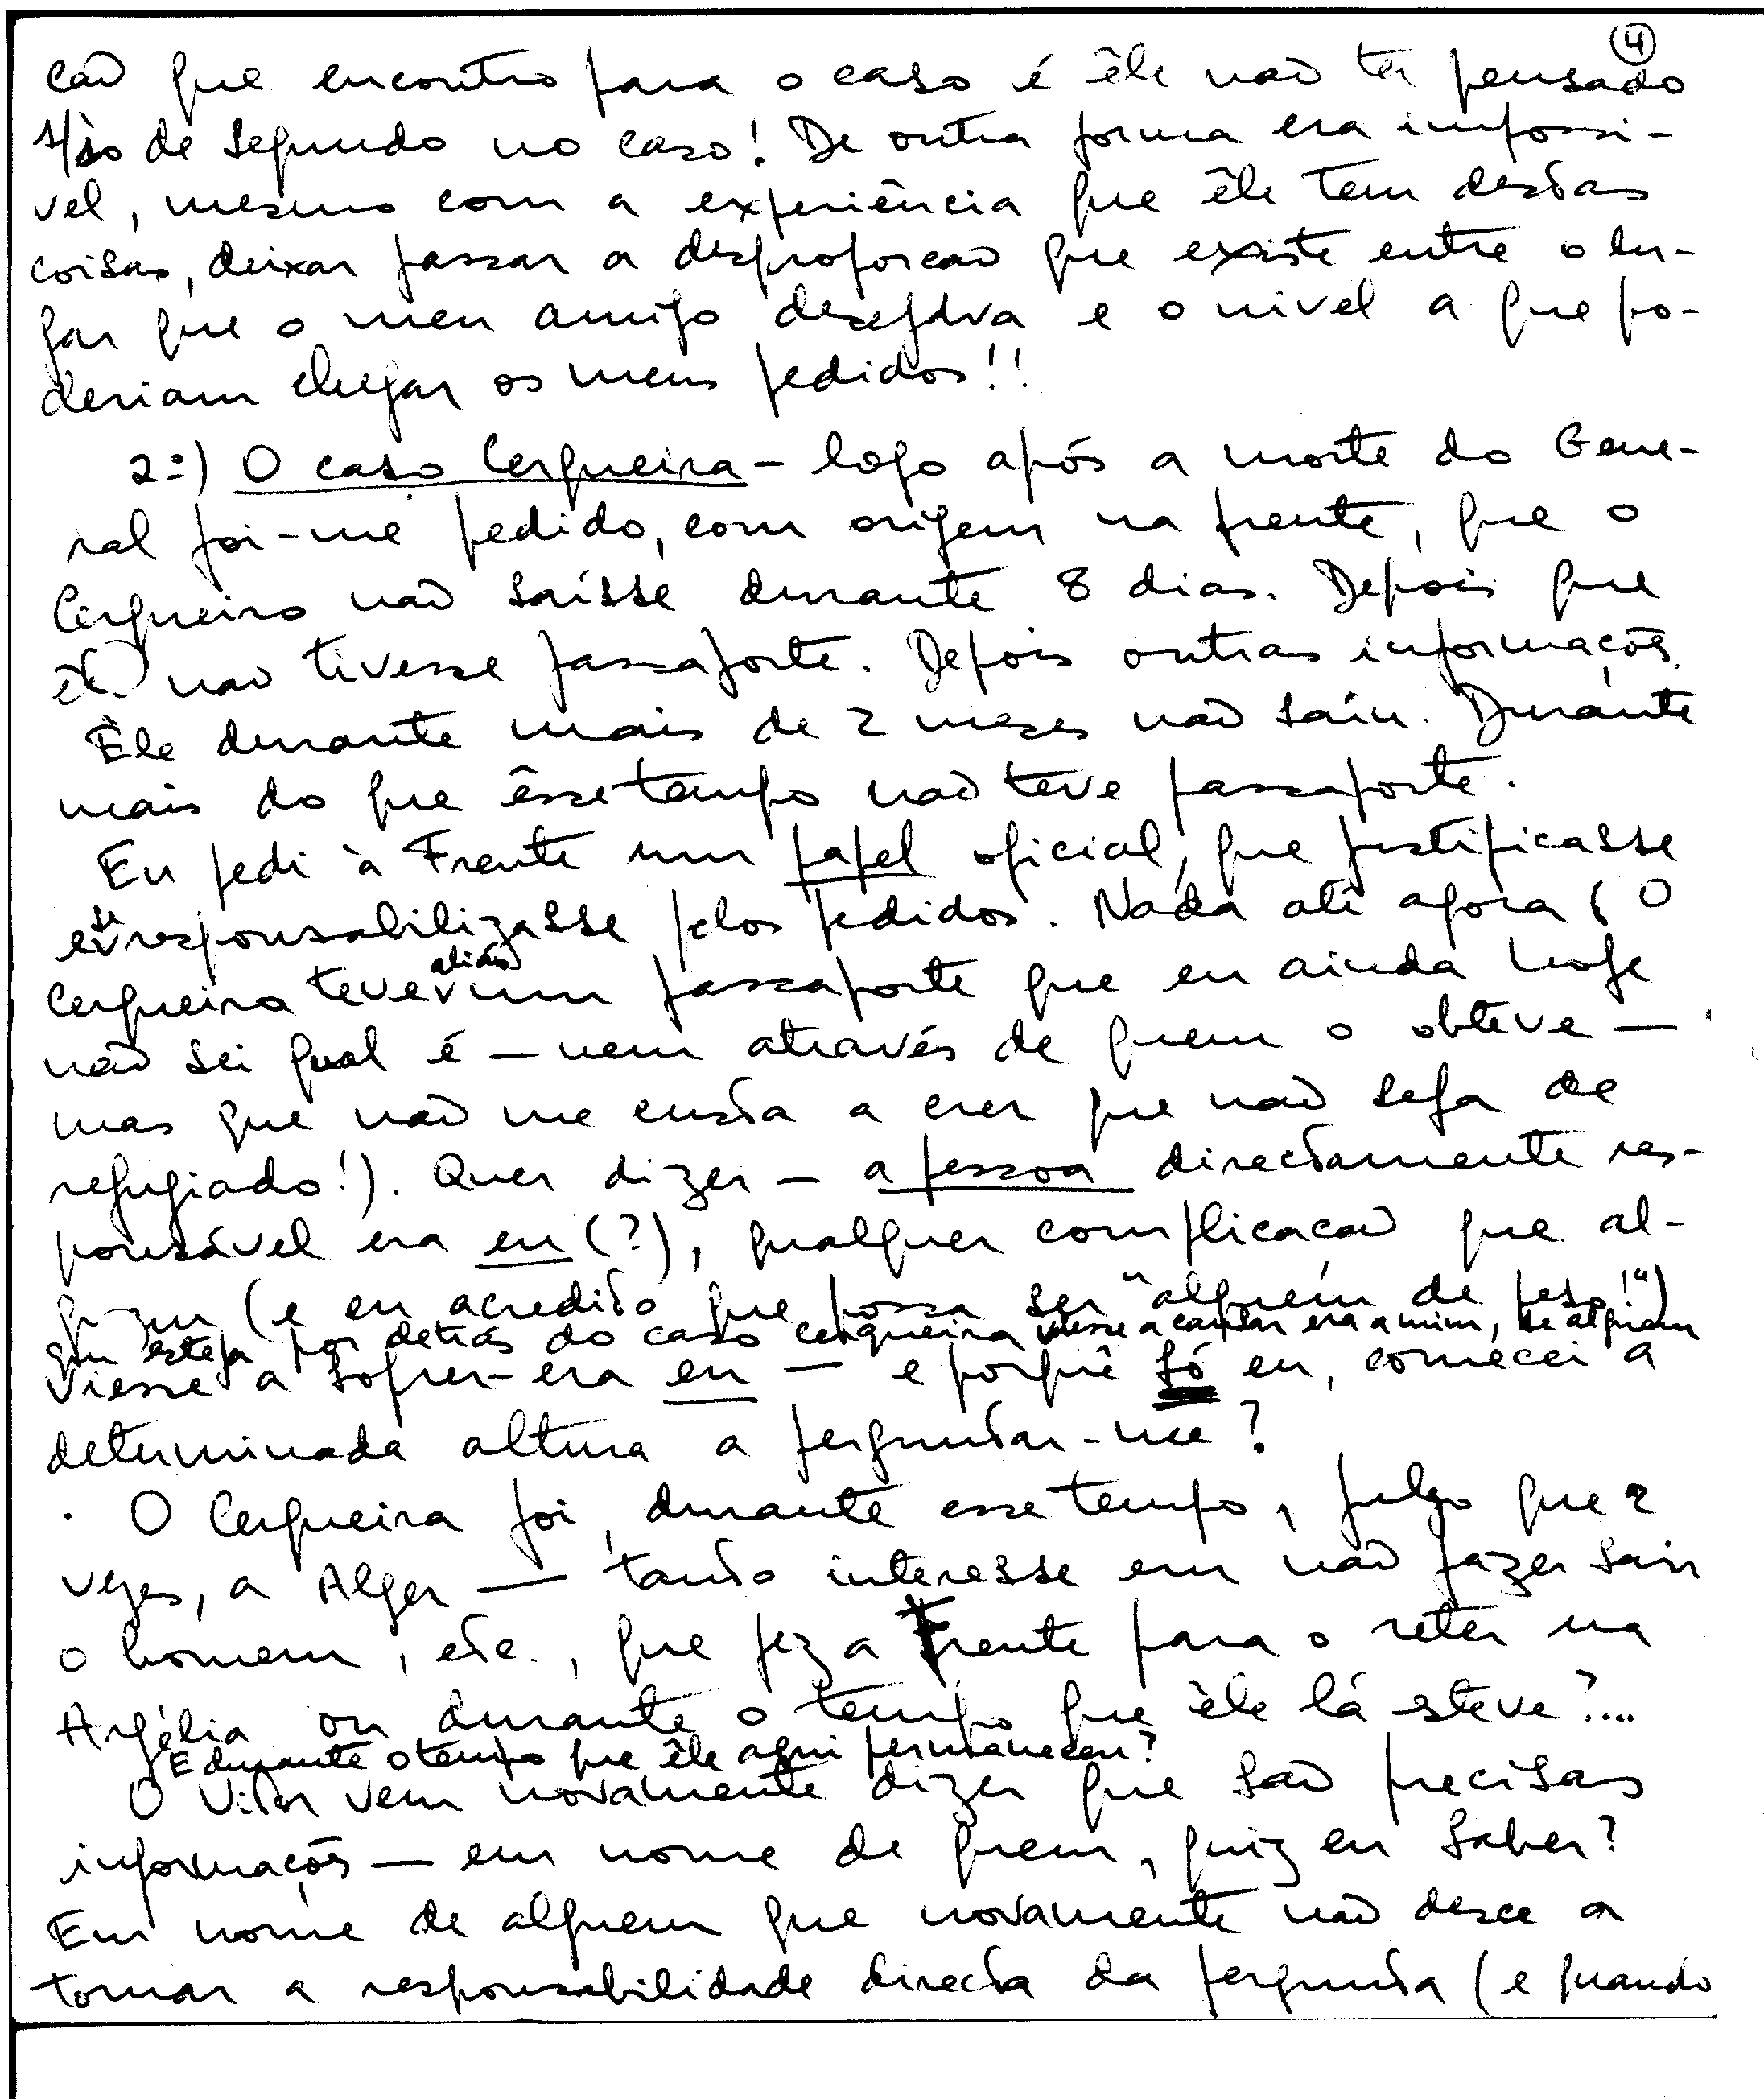 4
cão que encontro para o caso é êle não ter pensado
1/10 de segundo no caso! De outra forma era impossi-
vel, mesmo com a experiência que êle tem destas
coisas, deixar passar a desproporcão que existe entre o lu-
gar que o meu amigo desejava e o nivel a que po-
deriam chegar os meus pedidos!!
2º) O caso Cerqueira - logo após a morte do Gene-
ral foi-me pedido, com origem na frente, que o
Cerqueira não saísse durante 8 dias. Depois que
êle não tivesse passaporte. Depois outras informações.
Êle durante mais de 2 meses não saíu. Durante
mais do que êsse tempo não teve passaporte.
Eu pedi à Frente um papel oficial, que justificasse
e se responsabilizasse pelos pedidos. Nada até agora (O
Cerqueira teve aliás um passaporte que eu ainda hoje
não sei qual é — nem através de quem o obteve —
mas que não me custa a crer que não seja de
refugiado!). Quer dizer — a pessoa directamente res-
ponsável era eu (?), qualquer complicacão que al-
guem (e eu acredito que possa ser "alguém de peso!")
que esteja por detrás do caso cerqueira viesse a causar era a mim, se alguem
viesse a sofrer - era eu — e porquê só eu, comecei a
determinada altura a perguntar-me?
O Cerqueira foi, durante esse tempo, julgo que 2
vezes, a Alger — tanto interesse em não fazer sair
o homem, etc., que fez a Frente para o reter na
Argélia ou durante o tempo que êle lá esteve?....
E durante o tempo que êle aqui permaneceu?
O Vitor vem novamente dizer que são precisas
informações — em nome de quem, quiz eu saber?
Em nome de alguem que novamente não desce a
tomar a responsabilidade directa da pergunta (e quando